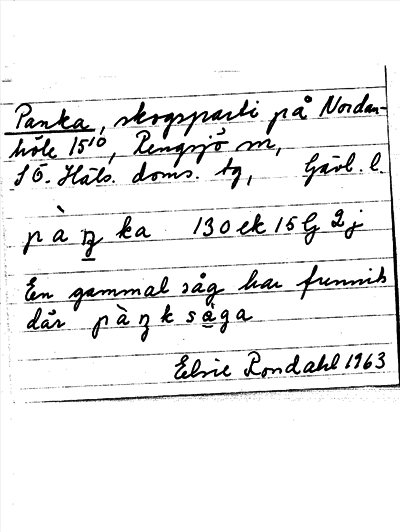 Panka, skogsparti på Nordan-
höle 15¹⁰, Rengsjö sn,
SÖ. Häls. doms. tg, Gävl. l.
pàŋka 130ek 15G 2j
En gammal såg har funnits
där pàŋksåga
Elsie Rondahl 1963